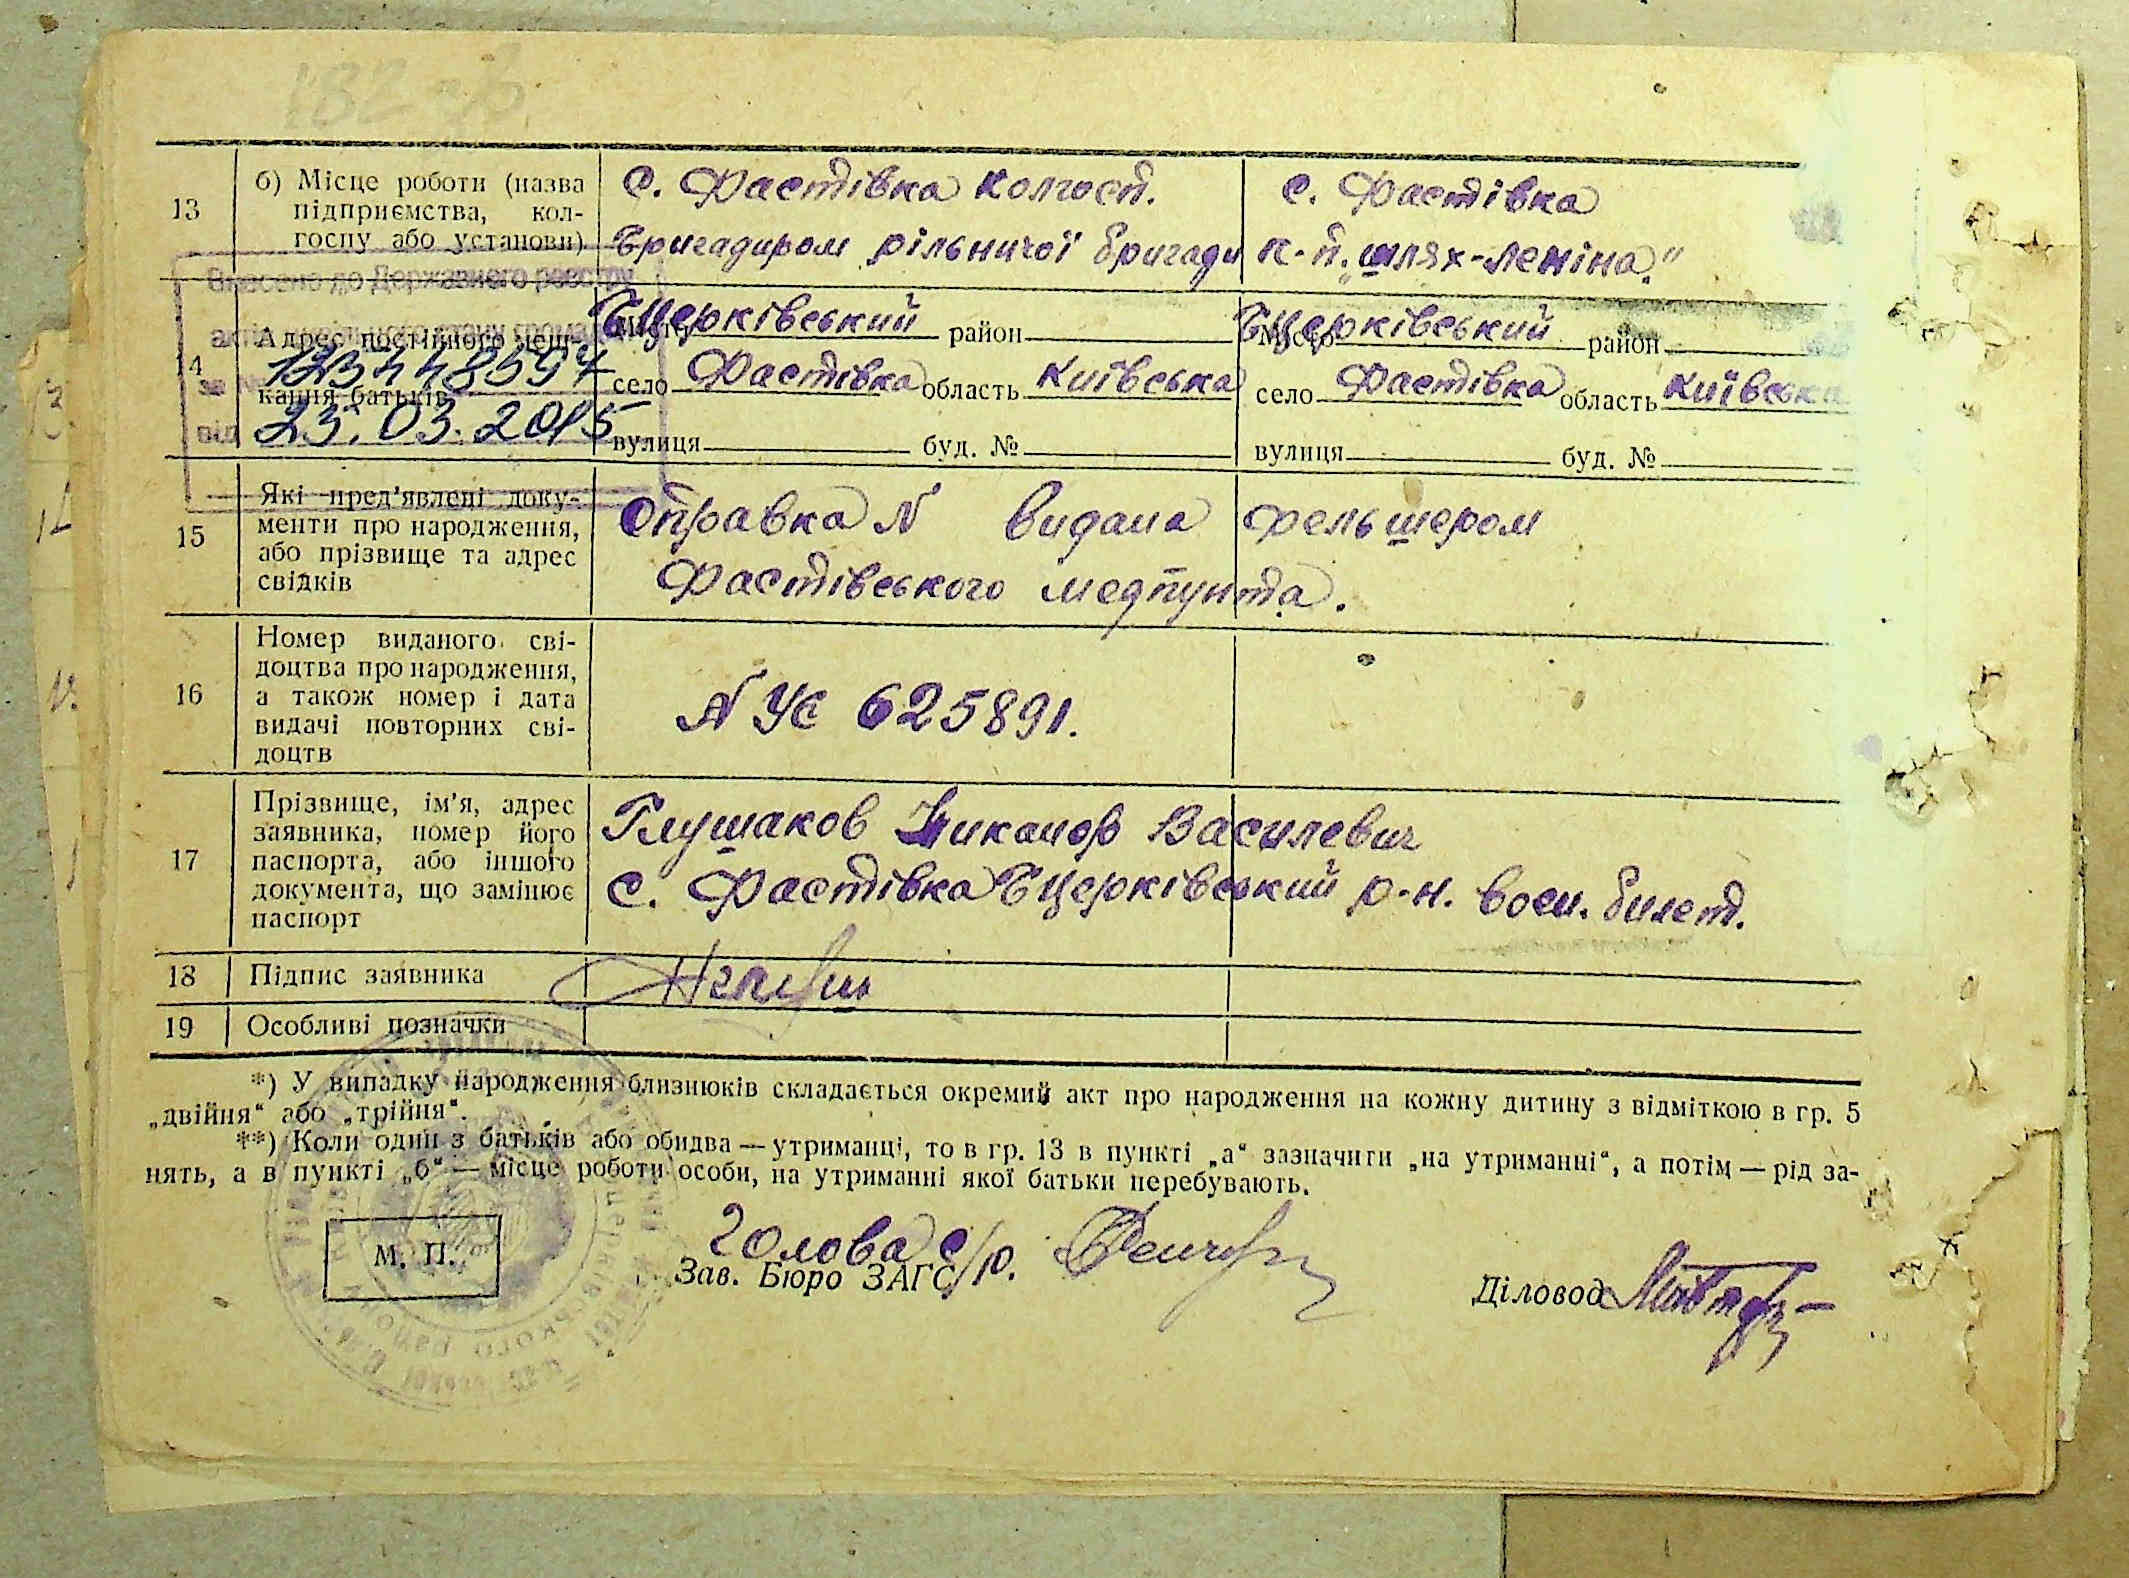 182 зв
13
б) Місце роботи (назва
підприємства, кол-
госпу або установи)
С. Фастівка колгосп.
Бригадиром рільничої бригади
с. Фастівка
к-п. „шлях-леніна"
Внесено до Державного реєстру
актів цивільного стану грома
за № 123448597
від 23.03.2015
14
Адрес постійного меш-
кання батьків
Місто БЦерківський район
село Фастівка область Київська
вулиця буд. №
Місто БЦерківський район
село Фастівка область Київська
вулиця буд. №
15
Які пред'явлені доку-
менти про народження,
або прізвище та адрес
свідків
Справка N видана фельшером
Фастівського медпункта.
16
Номер виданого сві-
доцтва про народження,
а також номер і дата
видачі повторних сві-
доцтв
N УС 625891.
17
Прізвище, ім'я, адрес
заявника, номер його
паспорта, або іншого
документа, що замінює
паспорт
Глушаков Никанор Василевич
С. Фастівка БЦерківський р-н. воен. билет.
18 Підпис заявника
19 Особливі позначки
*) У випадку народження близнюків складається окремий акт про народження на кожну дитину з відміткою в гр. 5
„двійня“ або „трійня“.
**) Коли один з батьків або обидва — утриманці, то в гр. 13 в пункті „а“ зазначити „на утриманні“, а потім — рід за-
нять, а в пункті „б“ — місце роботи особи, на утриманні якої батьки перебувають.
М. П.
Голова с/р.
Зав. Бюро ЗАГС
Діловод